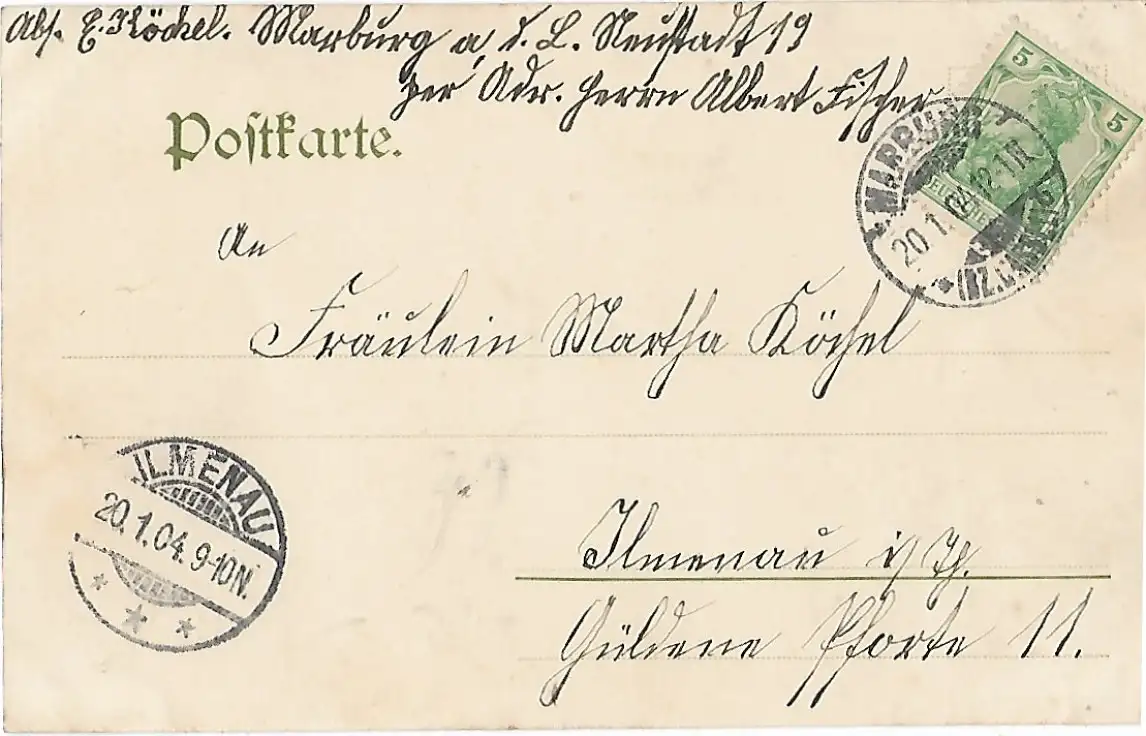 Abs. E. Köchel. Marburg a. d. L. Neustadt 19
per Adr. Herrn Albert Fischer
Postkarte.
5
5
MARBURG
20.1.04 12-1N.
An
Fräulein Martha Köchel
ILMENAU
20.1.04. 9-10N.
Ilmenau i/Th.
Güldene Pforte 11.